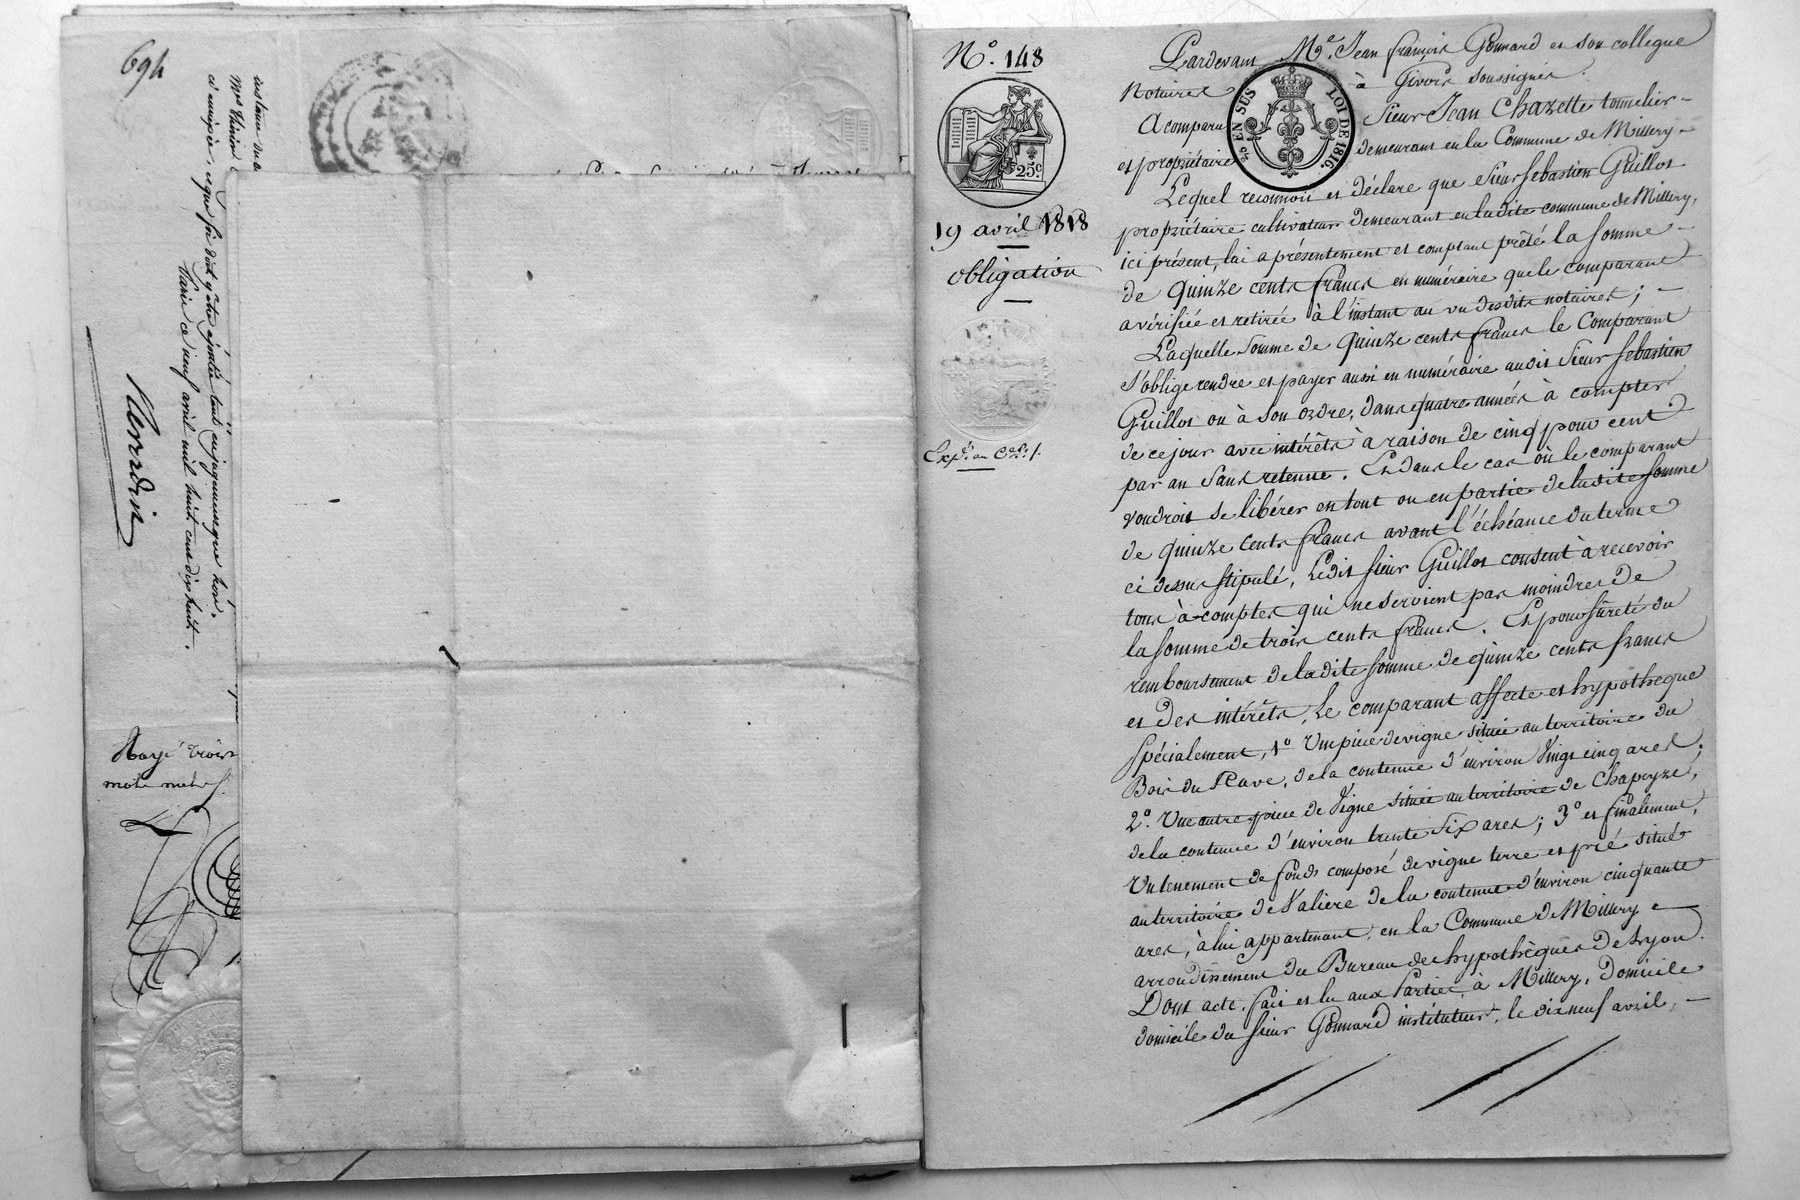 694
instance du d
Mrs Thirion
Paris ce neuf avril mil huit cent dix huit.
Verdin
Rayé trois
mots nuls.
N.º 148
25ᶜ
19 avril 1818
obligation
Pardevant Mᵉ. Jean françois Gonnard et son collegue
Notaires à Givors soussignés.
EN SUS
LOI DE 1816.
A comparu Sieur Jean Chazette tonnelier
et propriétaire demeurant en la Commune de Millery
Lequel reconnoit et déclare que Sieur Sebastien Guillot
propriétaire cultivateur demeurant en ladite commune de Millery,
ici présent, lui a présentement et comptant prêté la somme
de quinze cents francs en numéraire que le comparant
a vérifiée et retirée à l'instant au vu desdits notaires ;
Laquelle somme de quinze cents francs le Comparant
s'oblige rendre et payer aussi en numéraire audit Sieur Sebastien
Guillot ou à son ordre, dans quatre années à compter
de ce jour avec intérêts à raison de cinq pour cent
par an sans retenue. Et dans le cas où le comparant
voudroit se libérer en tout ou en partie de ladite somme
de quinze cents francs avant l'échéance du terme
ci dessus stipulé, Ledit sieur Guillot consent à recevoir
tous à-comptes qui ne seroient pas moindres de
la somme de trois cents francs. Et pour sûreté du
remboursement de ladite somme de quinze cents francs
et des intérêts, Le comparant affecte et hypotheque
spécialement, 1º Une piece de vigne située au territoire du
Bois du Rave, de la contenue d'environ Vingt cinq ares ;
2º. Une autre piece de Vigne située au territoire de Chapeyze,
de la contenue d'environ trente six ares ; 3º et finalement,
Un tenement de fonds composé de vigne terre et pré situé
au territoire de Valiere de la contenue d'environ cinquante
ares, à lui appartenant, en la Commune de Millery
arrondissement du Bureau des hypothèques de Lyon.
Dont acte, fait et lu aux Parties, à Millery, Domicile
domicile du sieur Gonnard instituteur, le dix neuf avril,